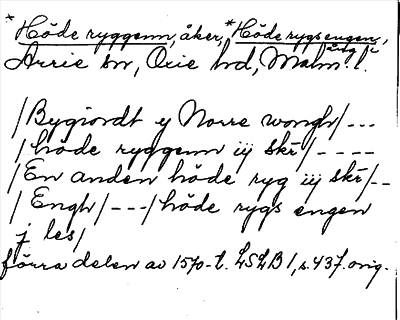 *Höde ryggenn, åker, *Höde rygs engen,
äng i
Arrie sn, Oxie hd, Malm. l.
/Bygiordt y Norre wongh/---
/höde ryggenn iij skr/----
/En anden höde ryg iij skr/--
/Engh/---/höde rygs engen
j les/
förra delen av 1570-t. LSLB 1, s. 437. orig.